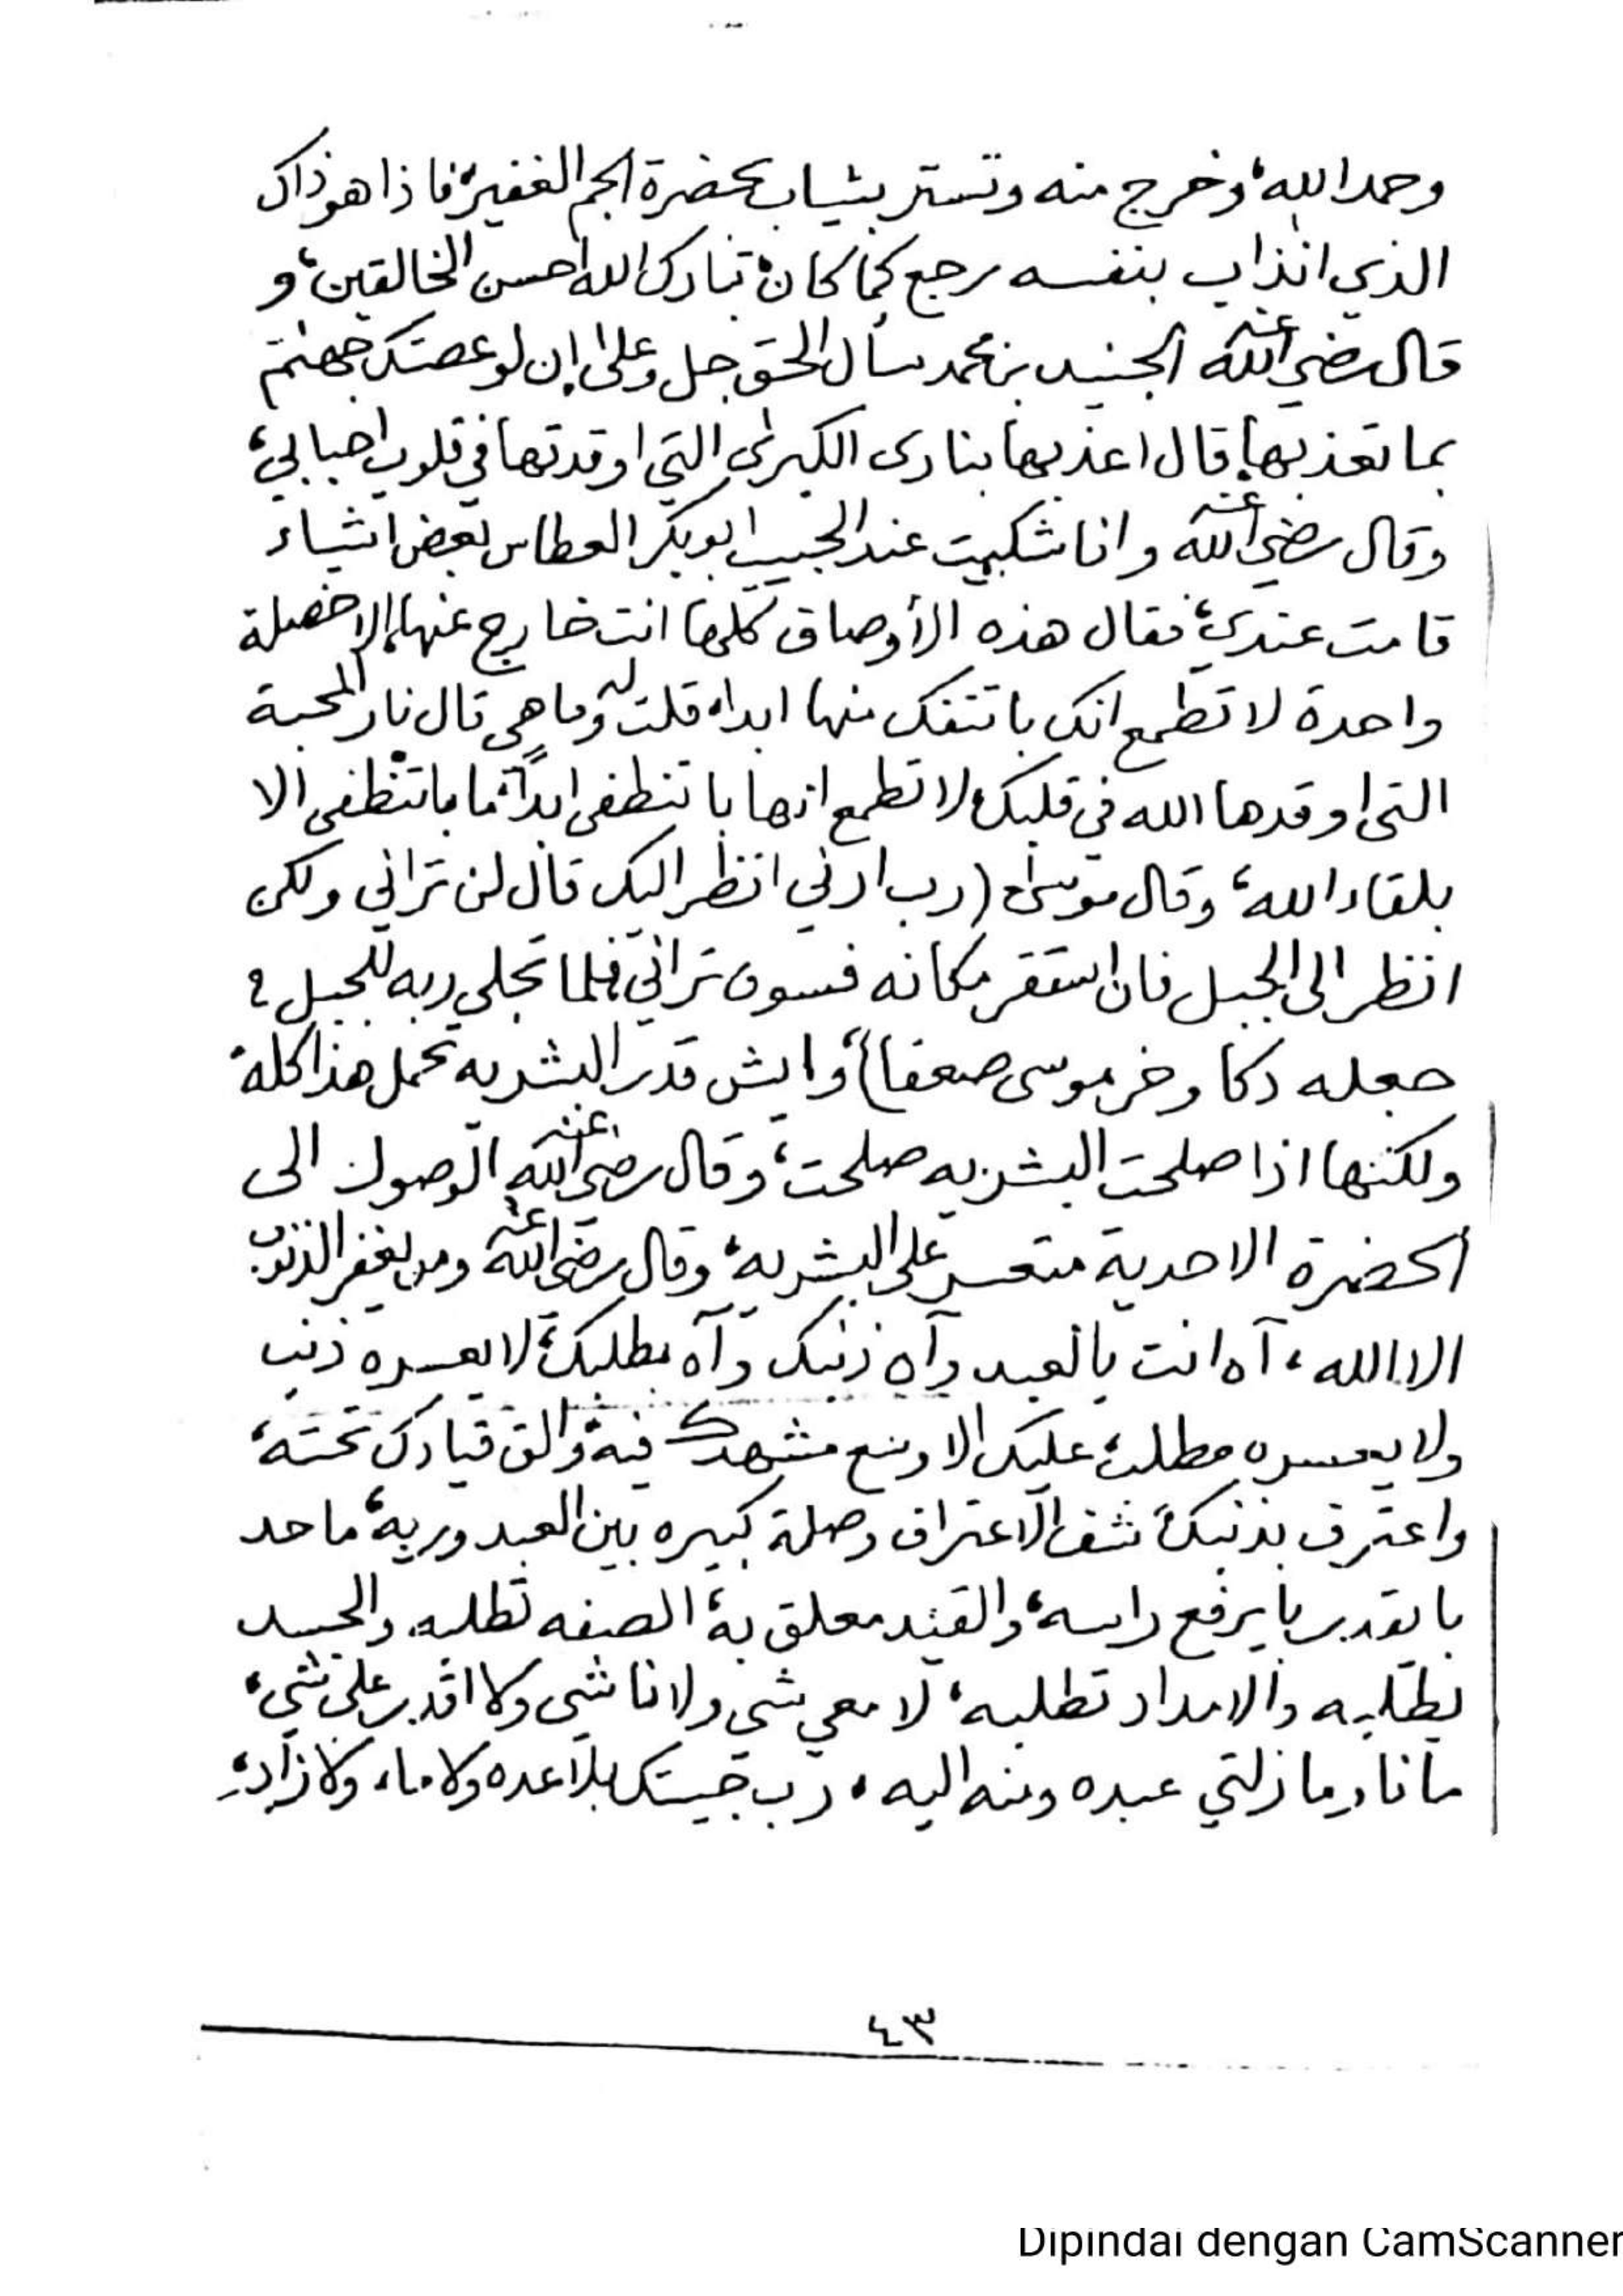 وحمد الله، وخرج منه وتستر بثياب بحضرة الجم الغفير، فاذا هو ذاك
الذي انذاب بنفسه رجع كما كان، تبارك الله احسن الخالقين، و
قال رضي الله عنه الجنيد بن محمد سأل الحق جل وعلى إن لو عصتك جهنم
بما تعذبها، قال اعذبها بناري الكبرى التي اوقدتها في قلوب احبابي،
وقال رضي الله عنه وانا شكيت عند الحبيب ابوبكر العطاس بعض اشياء
قامت عندي، فقال هذه الأوصاف كلها انت خارج عنها، إلا خصلة
واحدة لا تطمع انك با تنفك منها ابدا، قلت له وما هي قال نار المحبة
التي اوقدها الله في قلبك، لا تطمع انها با تنطفى ابداً، ما با تنطفى الا
بلقاء الله، وقال موسى (رب ارني انظر اليك قال لن تراني ولكن
انظر الى الجبل فان استقر مكانه فسوف تراني، فلما تجلى ربه للجبل
جعله دكا وخر موسى صعقا)، وايش قدر البشريه تحمل هذا كله،
ولكنها اذا صلحت البشريه صلحت، وقال رضي الله عنه الوصول الى
الحضرة الاحدية متعسر على البشريه، وقال رضي الله عنه ومن يغفر الذنوب
الا الله، آه انت يالعبد وآه ذنبك وآه مطلبك، لا يعسره ذنب
ولا يعسره مطلب، عليك الا وسع مشهدك فيه، والق قيادك تحته،
واعترف بذنبك، شف الاعتراف وصلة كبيره بين العبد وربه، ما حد
با يقدر با يرفع راسه، والقيد معلق به، الصفه تطلبه، والجسد
يطلبه والامداد تطلبه، لا معي شي ولا انا شي ولا اقدر على شي،
ما انا وما زلتي عبده ومنه اليه، رب جيتك بلا عده ولا ماء، ولا زاد،
٤٣
Dipindai dengan CamScanner